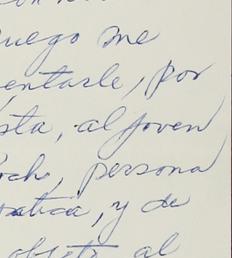 uego me
entarle, por
sta, al joven
och, persona
ática, y de
objeto al